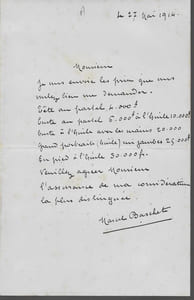 Le 27 Mai 1914.
Monsieur
Je vous envoie les prix que vous
voulez bien me demander.
Tête au pastel 4.000 f
Buste au pastel 6.000 f à l'huile 10.000 f
Buste à l'huile avec les mains 20.000
Grand portrait (huile) aux jambes 25.000 f
En pied à l'huile 30.000 f.
Veuillez agréer Monsieur
l'assurance de ma considération
la plus distinguée
Marcel Baschet